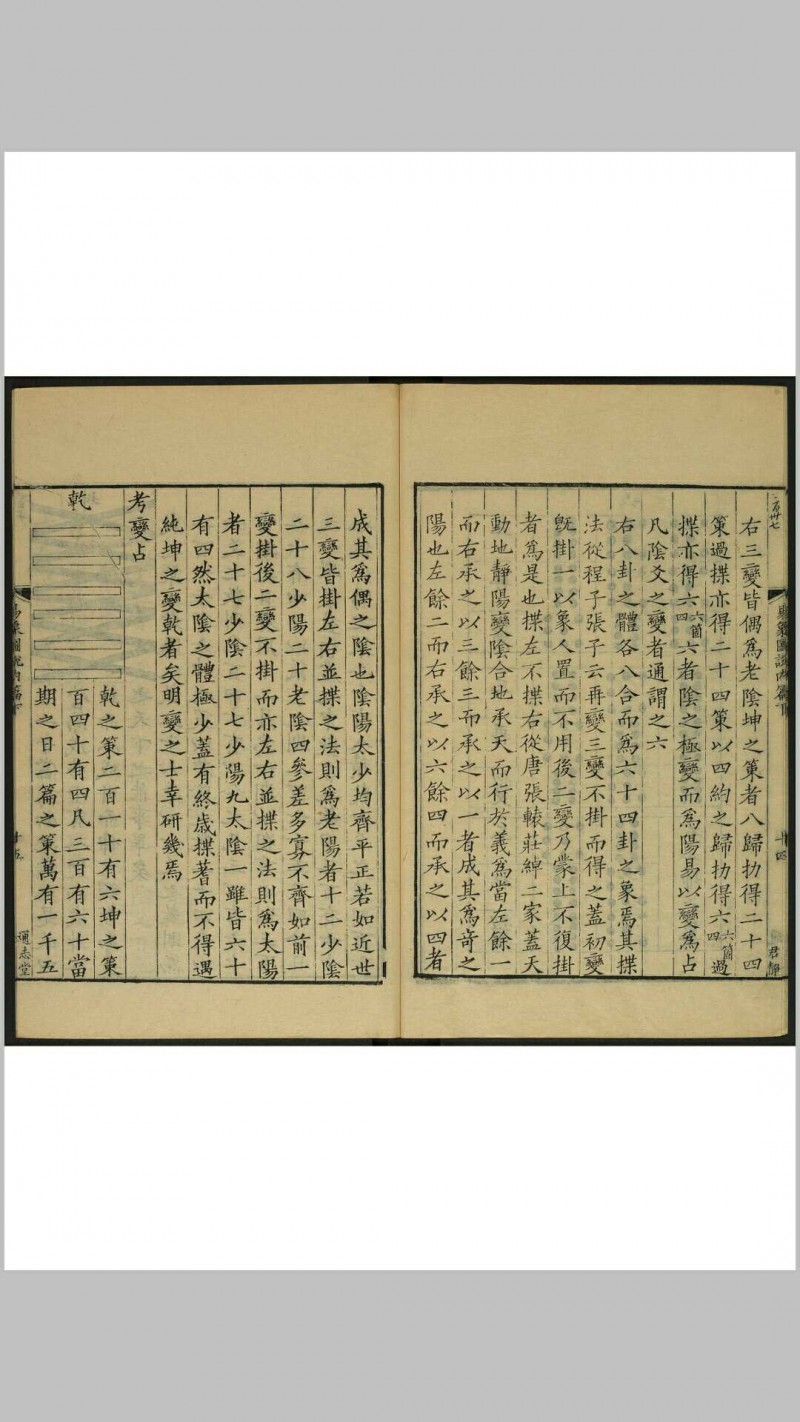 右三變皆偶爲老陰坤之策者八歸扐得二十四
策過揲亦得二十四策以四約之歸扐得六六箇四過
揲亦得六六箇四六者陰之極變而爲陽易以變爲占
凡陰爻之變者通謂之六
右八卦之體各八合而爲六十四卦之象焉其揲
法從程子張子云再變三變不掛而得之蓋初變
旣掛一以象人置而不用後二變乃蒙上不復掛
者爲是也揲左不揲右從唐張轅莊綽二家蓋天
動地靜陽變陰合地承天而行於義爲當左餘一
而右承之以三餘三而承之以一者成其爲竒之
陽也左餘二而右承之以六餘四而承之以四者
十四
君靜
成其爲偶之陰也陰陽太少均齊平正若如近世
三變皆掛左右並揲之法則爲老陽者十二少陰
二十八少陽二十老陰四參差多寡不齊如前一
變掛後二變不掛而亦左右並揲之法則爲太陽
者二十七少陰二十七少陽九太陰一雖皆六十
有四然太陰之體極少蓋有終歲揲蓍而不得遇
純坤之變乾者矣明變之士幸研幾焉
考變占
乾
乾之策二百一十有六坤之策
百四十有四凡三百有六十當
期之日二篇之策萬有一千五
易象圖說內篇下
十五
通志堂